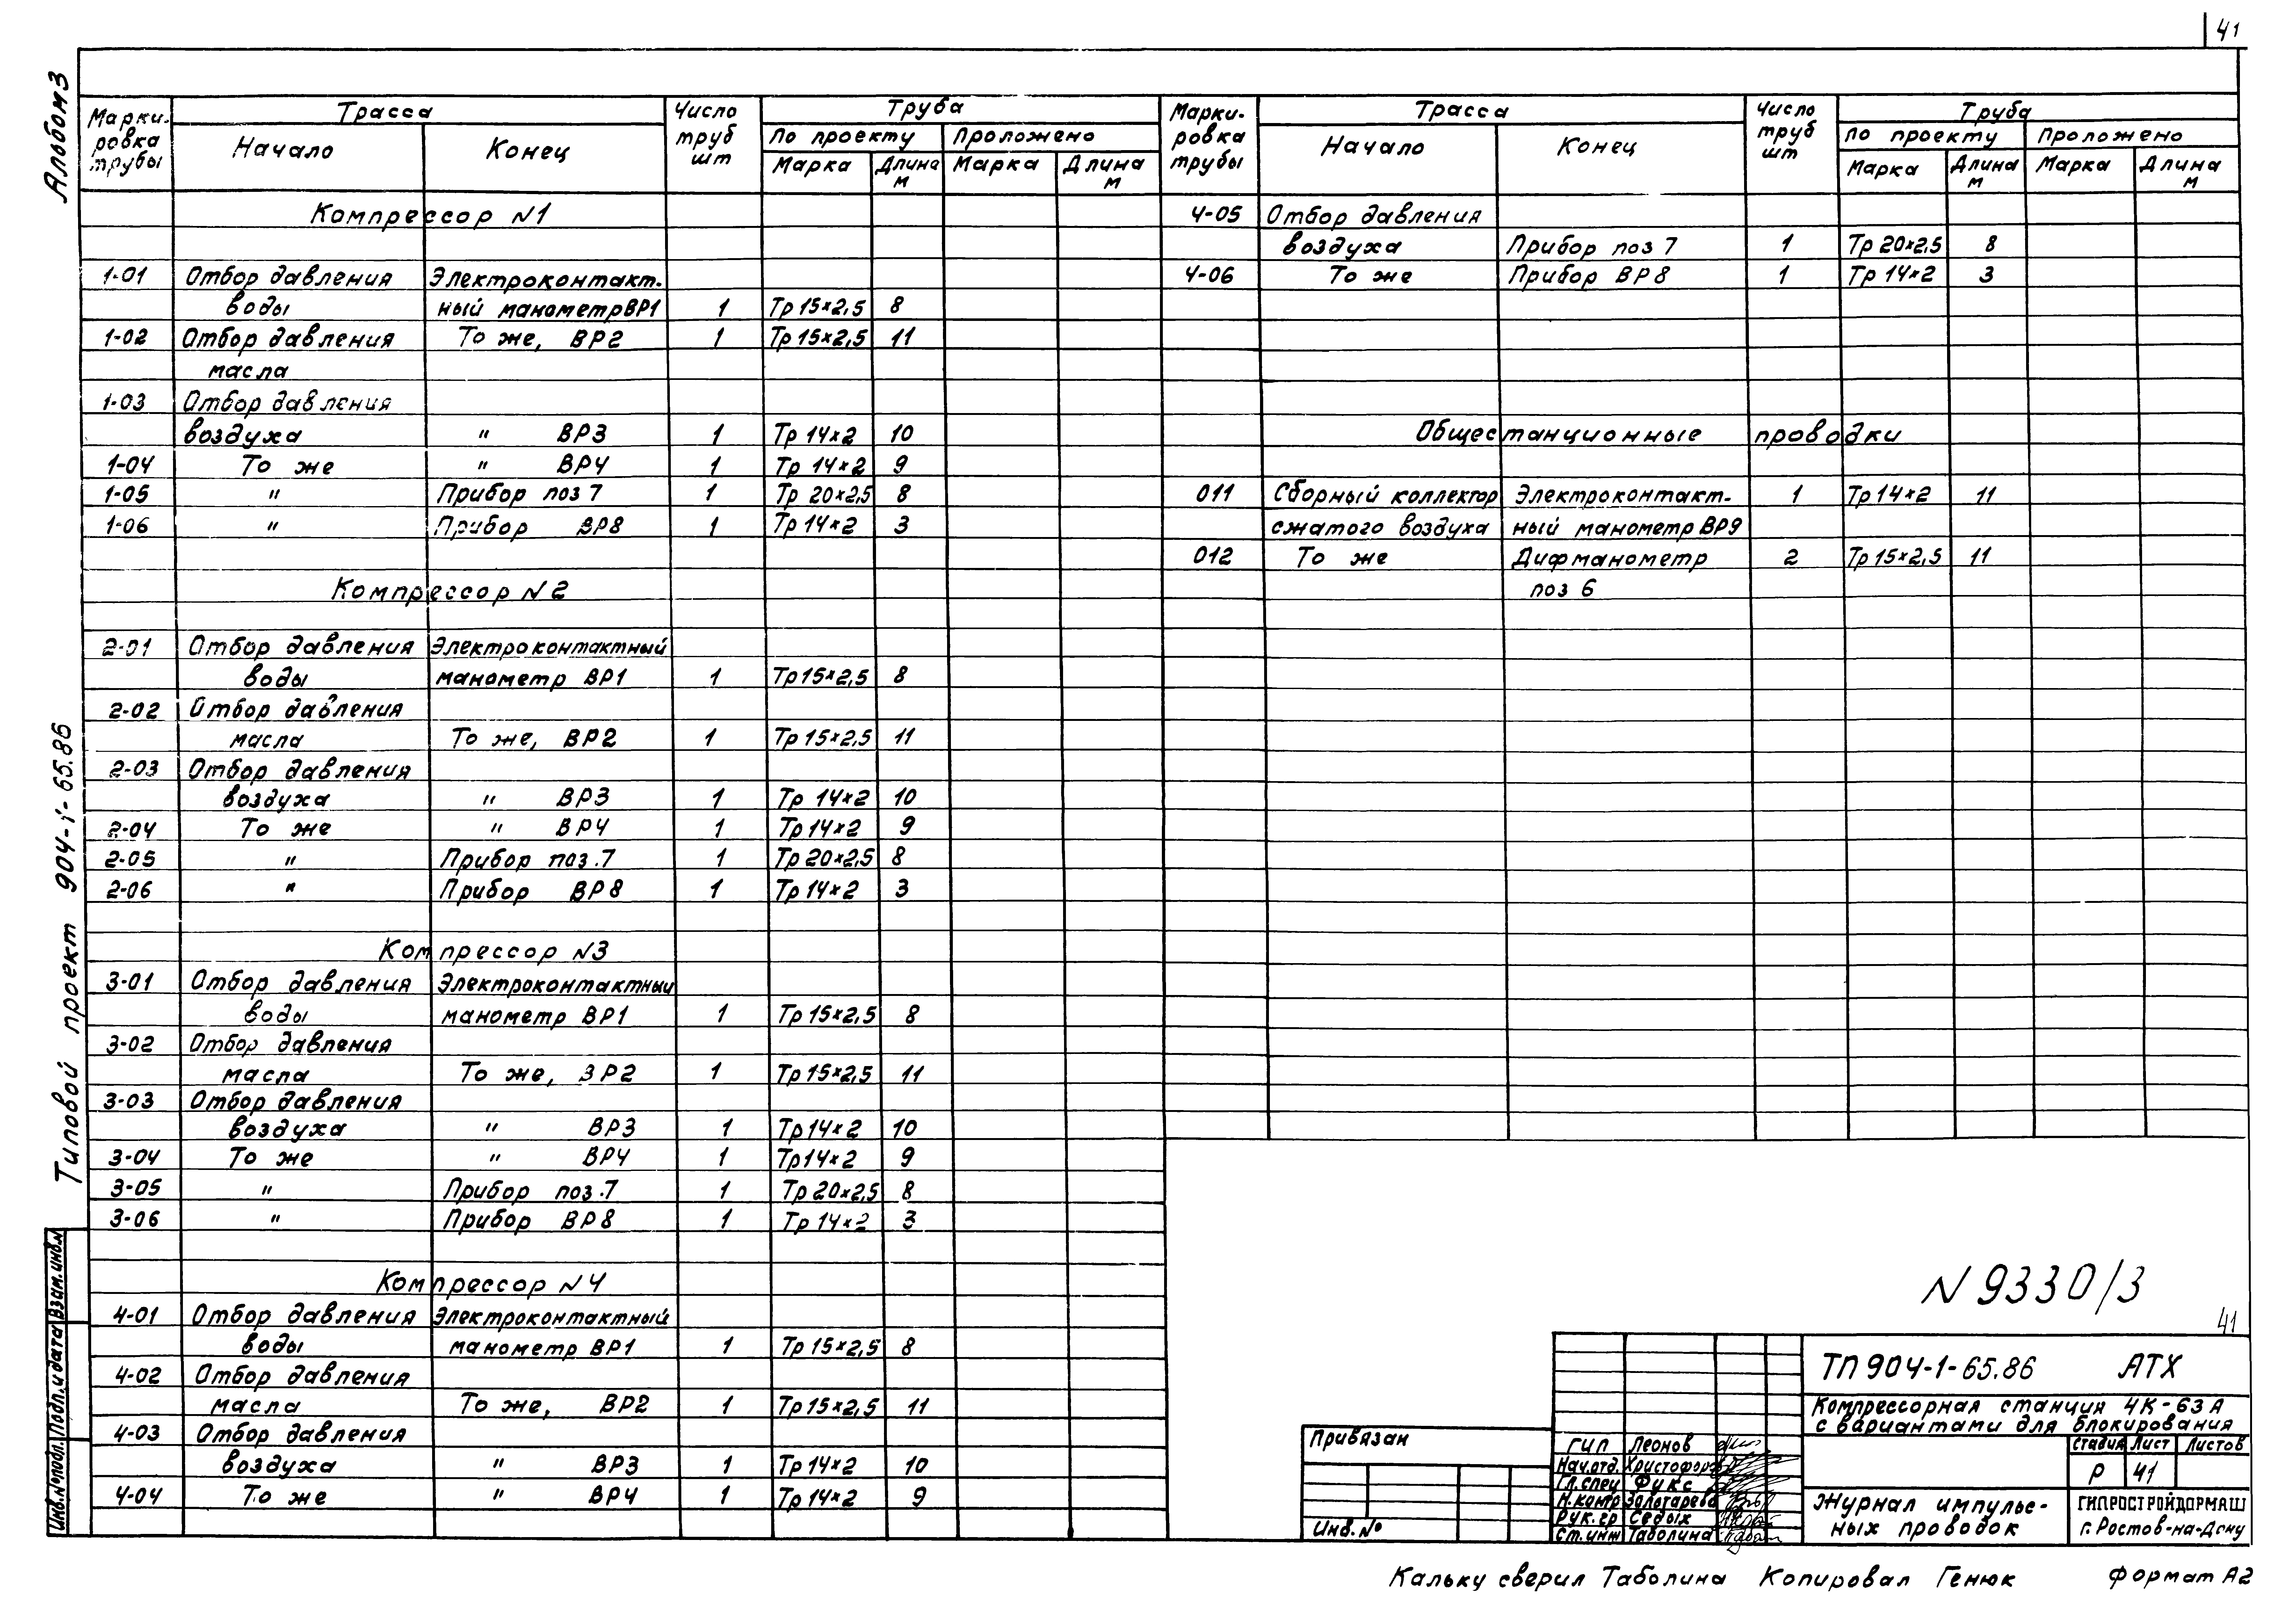 41
Альбом 3
Типовой проект 904-1-65.86
Марки-ровка трубы | Трасса | Число труб шт | Труба
Начало | Конец | По проекту | Проложено
Марка | Длина м | Марка | Длина м
Компрессор N1
1-01 Отбор давления Электроконтакт-
воды ный манометр ВР1 1 Тр 15×2,5 8
1-02 Отбор давления То же, ВР2 1 Тр 15×2,5 11
масла
1-03 Отбор давления
воздуха " ВР3 1 Тр 14×2 10
1-04 То же " ВР4 1 Тр 14×2 9
1-05 " Прибор поз 7 1 Тр 20×2,5 8
1-06 " Прибор ВР8 1 Тр 14×2 3
Компрессор N2
2-01 Отбор давления Электроконтактный
воды манометр ВР1 1 Тр 15×2,5 8
2-02 Отбор давления
масла То же, ВР2 1 Тр 15×2,5 11
2-03 Отбор давления
воздуха " ВР3 1 Тр 14×2 10
2-04 То же " ВР4 1 Тр 14×2 9
2-05 " Прибор поз.7 1 Тр 20×2,5 8
2-06 " Прибор ВР8 1 Тр 14×2 3
Компрессор N3
3-01 Отбор давления Электроконтактный
воды манометр ВР1 1 Тр 15×2,5 8
3-02 Отбор давления
масла То же, ВР2 1 Тр 15×2,5 11
3-03 Отбор давления
воздуха " ВР3 1 Тр 14×2 10
3-04 То же " ВР4 1 Тр 14×2 9
3-05 " Прибор поз.7 1 Тр 20×2,5 8
3-06 " Прибор ВР8 1 Тр 14×2 3
Компрессор N4
4-01 Отбор давления Электроконтактный
воды манометр ВР1 1 Тр 15×2,5 8
4-02 Отбор давления
масла То же, ВР2 1 Тр 15×2,5 11
4-03 Отбор давления
воздуха " ВР3 1 Тр 14×2 10
4-04 То же " ВР4 1 Тр 14×2 9
Марки-ровка трубы | Трасса | Число труб шт | Труба
Начало | Конец | По проекту | Проложено
Марка | Длина м | Марка | Длина м
4-05 Отбор давления
воздуха Прибор поз 7 1 Тр 20×2,5 8
4-06 То же Прибор ВР8 1 Тр 14×2 3
Общестанционные проводки
011 Сборный коллектор Электроконтакт- 1 Тр 14×2 11
сжатого воздуха ный манометр ВР9
012 То же Дифманометр 2 Тр 15×2,5 11
поз 6
N 9330/3
41
Взам.инв.N
Подп.и дата
Инв.Nподл.
Привязан
Инв.No
ГИП Леонов
Нач.отд. Христофоров
Гл.спец Фукс
Н.контр Золотарева
Рук.гр Седых
Ст.инж Таболина
ТП 904-1-65.86 АТХ
Компрессорная станция 4К-63А
с вариантами для блокирования
Стадия Лист Листов
Р 41
Журнал импульс-
ных проводок
ГИПРОСТРОЙДОРМАШ
г.Ростов-на-Дону
Кальку сверил Таболина Копировал Генюк формат А2